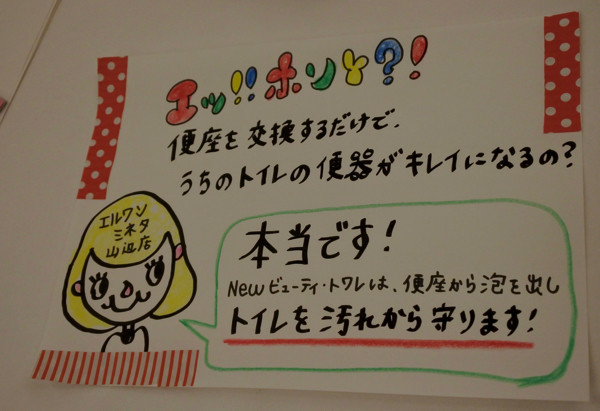 エッ!!ホント?!
便座を交換するだけで、
うちのトイレの便器がキレイになるの?
エルワン
ミネタ
山辺店
本当です!
Newビューティ・トワレは、便座から泡を出し
トイレを汚れから守ります!